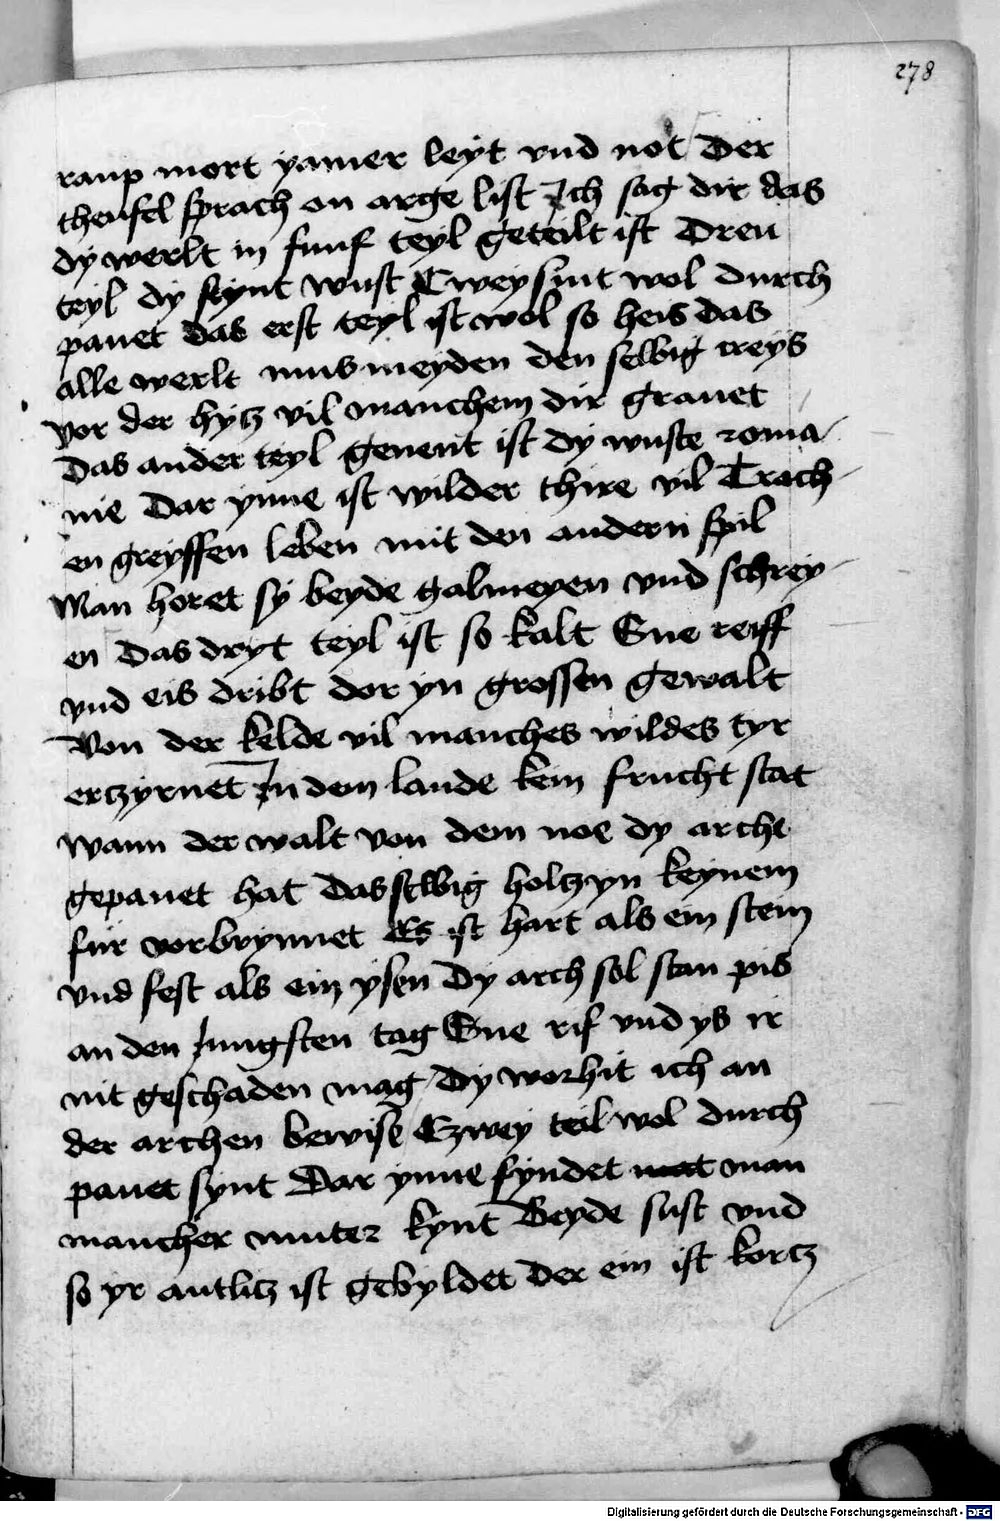 278
raup mort yamer leyt vnd not Der
theufel sprach on arge list Ich sag dir das
dy werlt in funf teyl geteilt ist Dreu
teyl dy synt wust Czwey sint wol durch
pauet das erst teyl ist wol so heis das
alle werlt mus meyden den selbig creys
vor der hytz vil manchem dir grauet
Das ander teyl genent ist dy wuste roma
nie Dar ynne ist wilder thire vil Trach
en greyffen leben mit den andern spil
Man horet sy beyde galmeyen vnd schrey
en Das dryt teyl ist so kalt Sne reiff
vnd eis dribt dor yn grossen gewalt
Von der kelde vil manches wildes tyr
erczyrnet In dem lande kein frucht stat
wann der walt von dem noe dy arche
gepauet hat das selbig holtz yn keynem
fur vorbrynnet Es ist hart als ein stein
vnd fest als ein ysen Dy arch sol stan pis
an den Jungsten tag Sne rif vnd ys ir
nit geschaden mag Dy worhit ich an
der archen bewise Czwey teil wol durch
pauet synt Dar ynne fyndet man
mancher muter kynt Beyde sust vnd
so yr antlitz ist gebyldet Der ein ist kortz
Digitalisierung gefördert durch die Deutsche Forschungsgemeinschaft - DFG